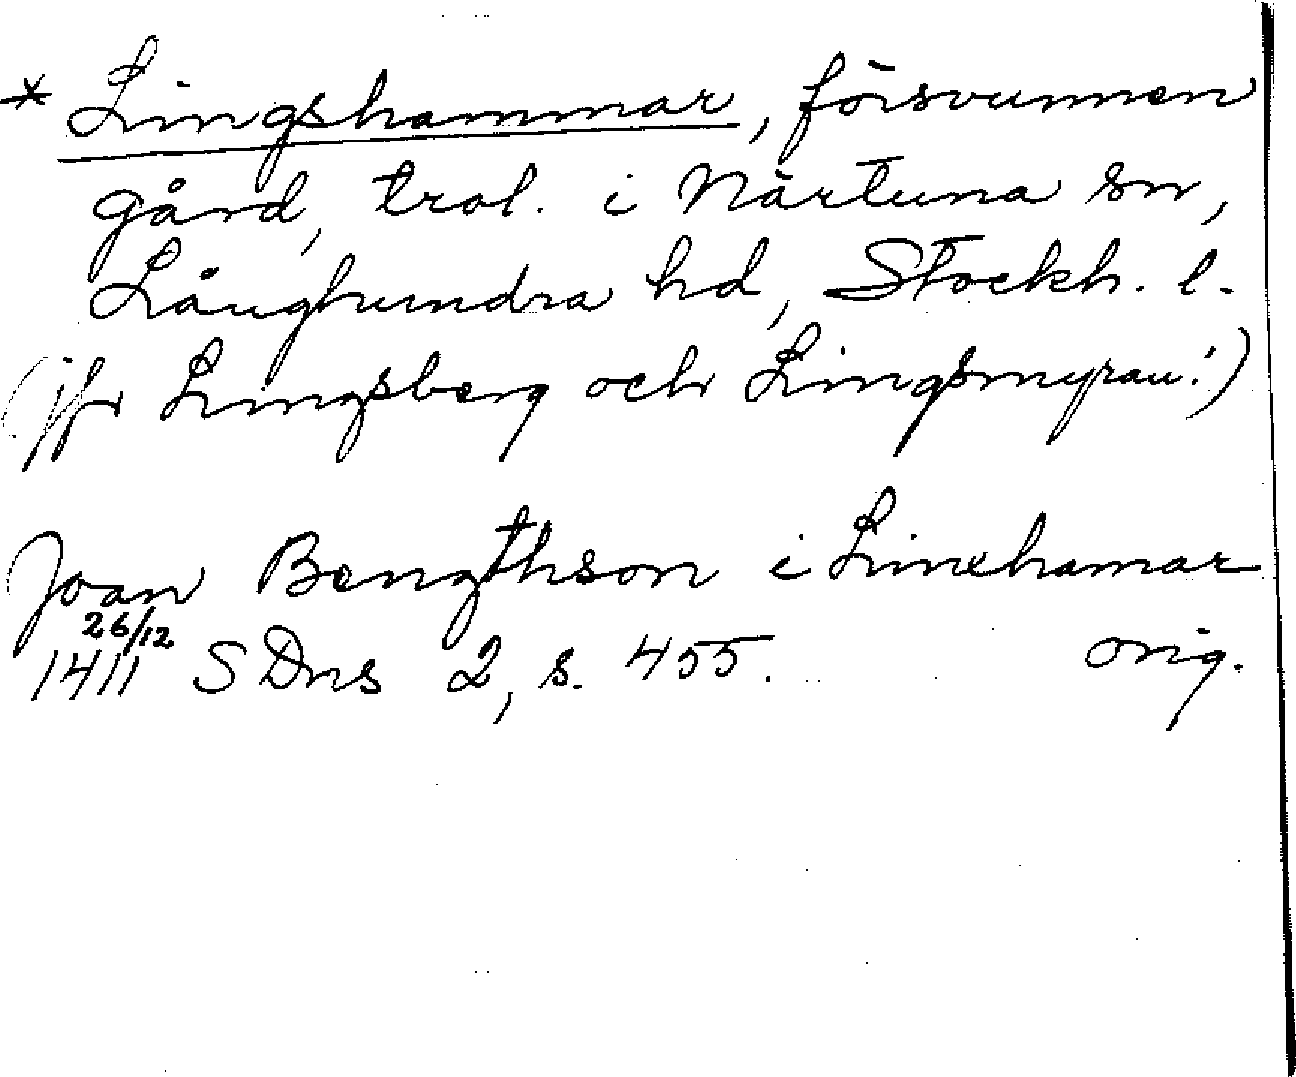 * Lingshammar, försvunnen
gård, trol. i Närtuna sn,
Långhundra hd, Stockh. l.
(jfr Lingsberg och Lingsmyran!)
Joan Bengthson i Linxhamar
26/12
1411 SDns 2, s. 455. orig.